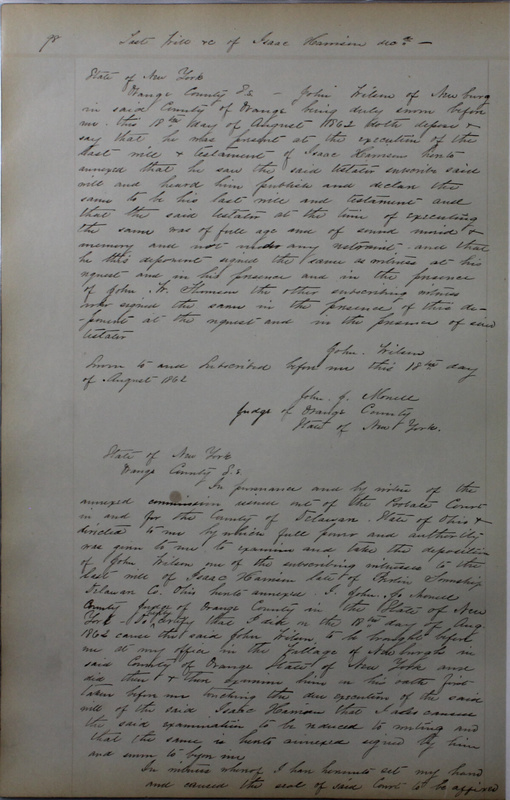 98 Last Will &c of Isaac Harrison decd —
State of New York
Orange County Ss — John Wilem of Newburg
in said County of Orange being duly sworn before
me this 18th day of August 1862 doth depose &
say that he was present at the execution of the
last will & testament of Isaac Harrison hereto
annexed that he saw the said testator subscribe said
will and heard him publish and declare the
same to be his last will and testament and
that the said testator at the time of executing
the same was of full age and of sound mind &
memory and not under any restraint and that
he this deponent signed the same as witness at his
request and in his presence and in the presence
of John W. the other subscribing witness
who signed the same in the presence of this de-
-ponent at the request and in the presence of said
testator
John Wilem
Sworn to and Subscribed before me this 18th day
of August 1862
John J. Monell
Judge of Orange County
State of New York.
State of New York
Orange County Ss.
In pursuance and by virtue of the
annexed commission issued out of the Probate Court
in and for the County of Delaware State of Ohio &
directed to me by which full power and authority
was given to me to examine and take the deposition
of John Wilem one of the subscribing witnesses to the
last will of Isaac Harrison late of Berlin Township
Delaware Co. Ohio hereto annexed I John J. Monell
County Judge of Orange County in the State of New
York do certify that I did on the 18th day of Aug.
1862 cause the said John Wilem to be brought before
me at my office in the Village of Newburgh in
said County of Orange State of New York and
did then & there examine him on his oath first
taken before me touching the due execution of the said
will of the said Isaac Harrison that I also caused
the said examination to be reduced to writing and
that the same is hereto annexed signed by him
and sworn to before me
In witness whereof I have hereunto set my hand
and caused the seal of said Court to be affixed